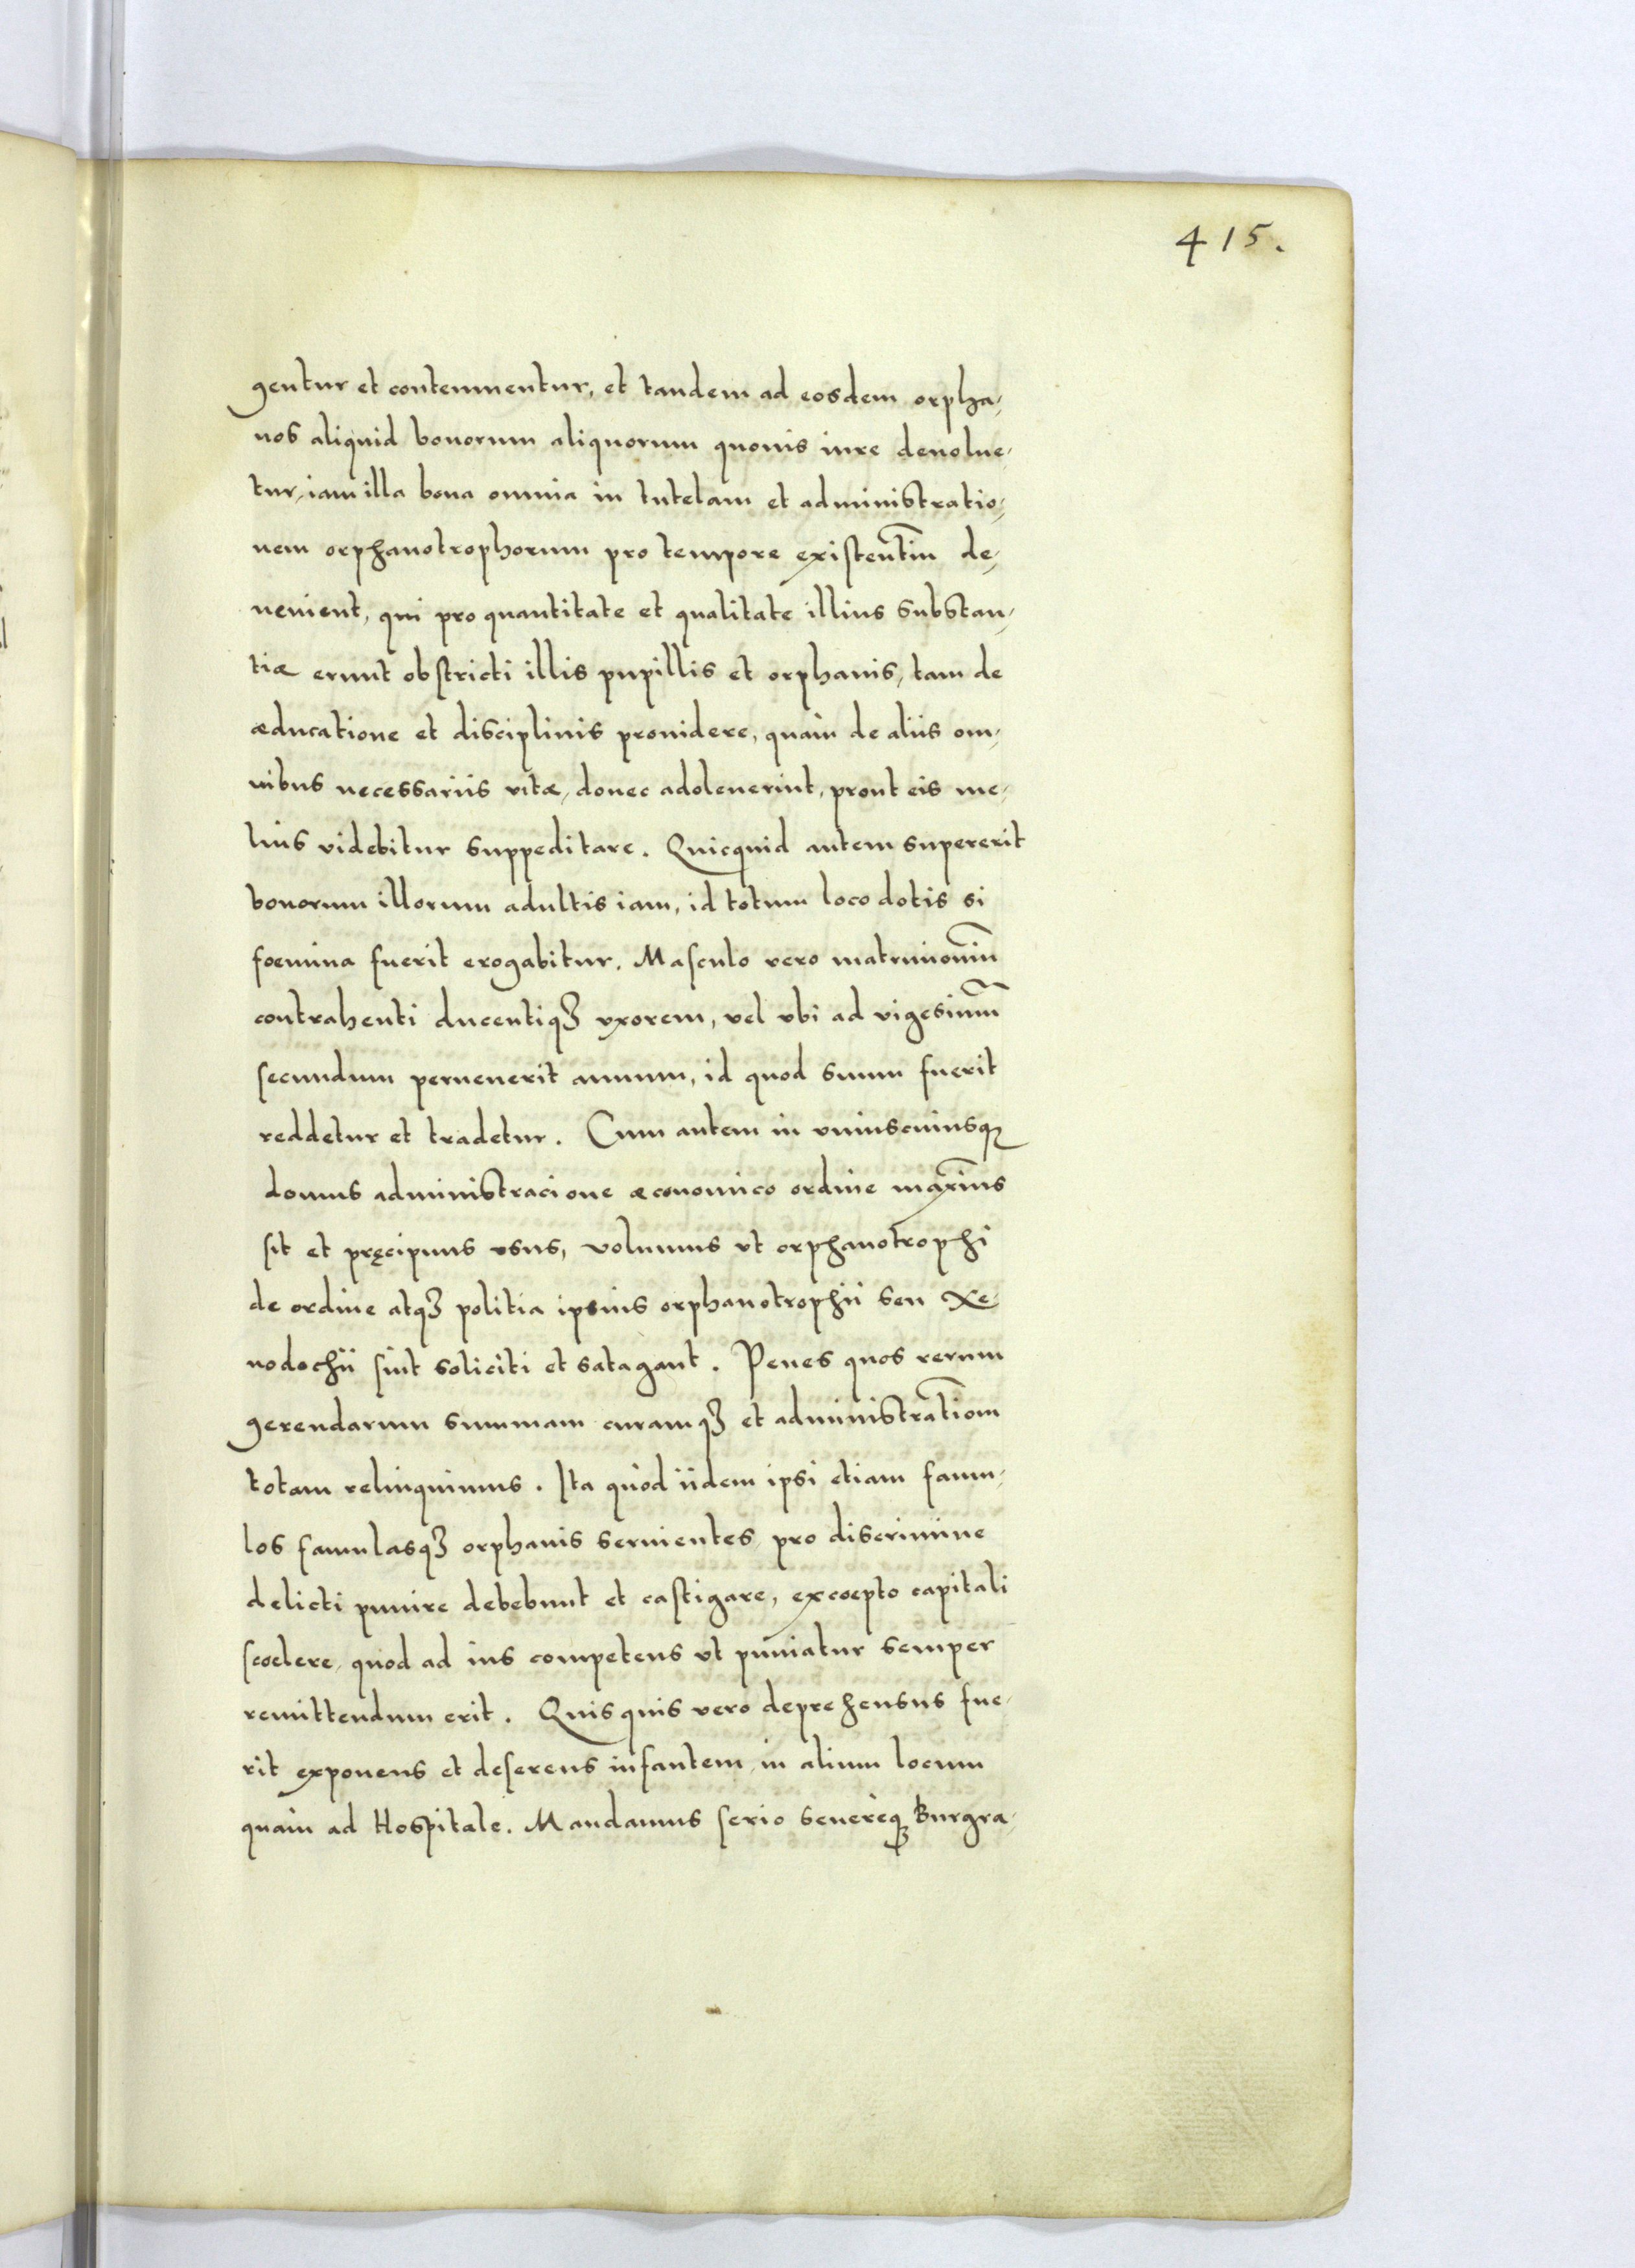 415.
gentur et contemnentur, et tandem ad eosdem orpha,
nos aliquid bonorum aliquorum quouis iure deuolue,
tur, iam illa bona omnia in tutelam et administratio,
nem orphanotrophorum pro tempore existentiũ de,
uenient, qui pro quantitate et qualitate illius substan,
tiæ erunt obstricti illis pupillis et orphanis, tam de
æducatione et disciplinis prouidere, quàm de aliis om,
nibus necessariis vitæ, donec adoleuerint, prout eis me,
lius videbitur suppeditare. Quicquid autem supererit
bonorum illorum adultis iam, id totum loco dotis si
foemina fuerit erogabitur. Masculo vero matrimoniũ
contrahenti ducentiqꝫ vxorem, vel vbi ad vigesimũ
secundum peruenerit annum, id quod suum fuerit
reddetur et tradetur. Cum autem in vniuscuiusqꝫ
domus administracione æconomico ordine maxĩus
sit et pręcipuus vsus, volumus vt orphanotrophi
de ordine atqꝫ politia ipsius orphanotrophii seu Xe,
nodochii sint soliciti et satagant. Penes quos rerum
gerendarum summam curamqꝫ et administratiõm
totam relinquimus. Ita quòd iidem ipsi etiam famu,
los famulasqꝫ orphanis seruientes, pro discrimine
delicti punire debebunt et castigare, excoepto capitali
scoelere, quod ad ius competens vt puniatur semper
remittendum erit. Quisquis vero deprehensus fue,
rit exponens et deserens infantem, in alium locum
quàm ad Hospitale. Mandamus serio seuerèqꝫ Burgra,